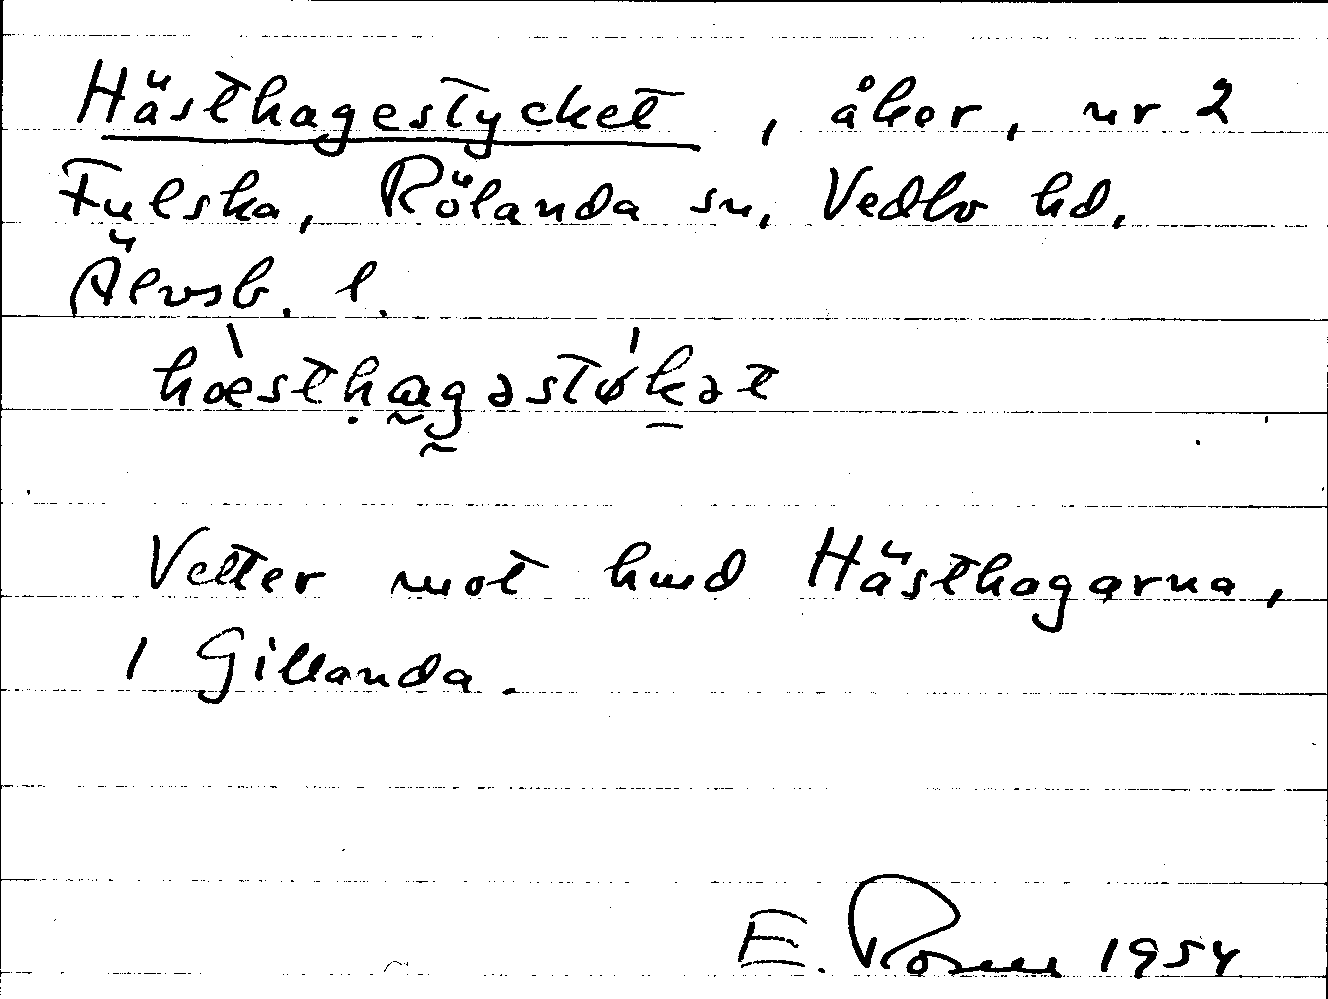 Hästhagestycket, åker, nr 2
Fulska, Rölanda sn, Vedbo hd,
Älvsb. l.
hæ̀stḥa̰g̰əstǿk̲ət
Vetter mot hmd Hästhagarna,
i Gillanda.
E. Rosén 1954